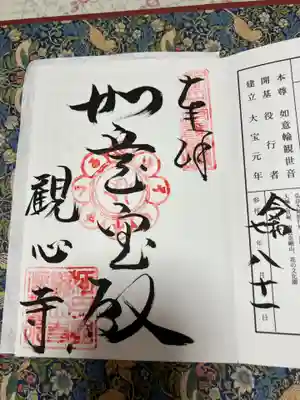 奉拝
如意宝殿
觀心寺
本尊 如意輪観世音
開基 役行者
建立 大宝元年
八 十一
年 月 日